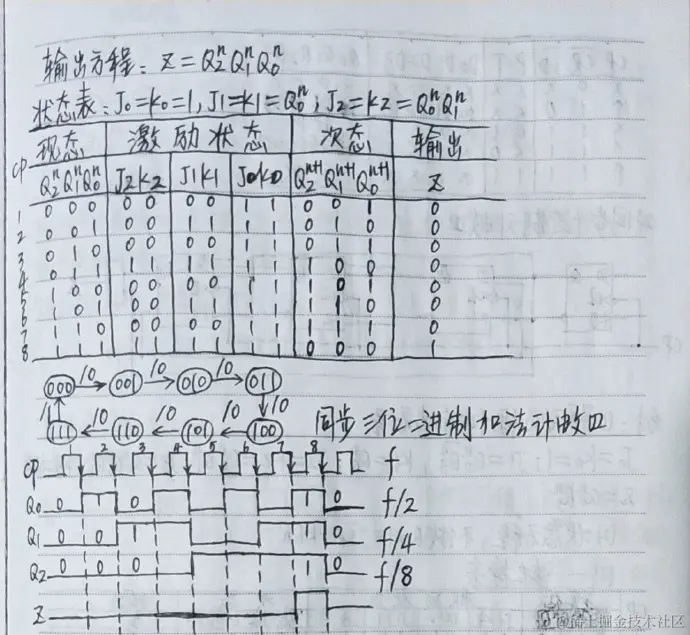 输出方程：Z=Q₂ⁿQ₁ⁿQ₀ⁿ
状态表：J₀=K₀=1，J1=K1=Q₀ⁿ；J₂=K₂=Q₀ⁿQ₁ⁿ
现态 激励状态 次态 输出
CP Q₂ⁿQ₁ⁿQ₀ⁿ J2K2 J1K1 J0K0 Q₂ⁿ⁺¹Q₁ⁿ⁺¹Q₀ⁿ⁺¹ Z
1 0 0 0 0 0 0 0 1 1 0 0 1 0
2 0 0 1 0 0 1 1 1 1 0 1 0 0
3 0 1 0 0 0 0 0 1 1 0 1 1 0
4 0 1 1 1 1 1 1 1 1 1 0 0 0
5 1 0 0 0 0 0 0 1 1 1 0 1 0
6 1 0 1 0 0 1 1 1 1 1 1 0 0
7 1 1 0 0 0 0 0 1 1 1 1 1 0
8 1 1 1 1 1 1 1 1 1 0 0 0 1
000 /0 001 /0 010 /0 011
/1 /0
111 /0 110 /0 101 /0 100 同步三位二进制加法计数口
CP 1 2 3 4 5 6 7 8 f
Q0 0 1 0 1 0 f/2
Q1 0 0 1 1 0 f/4
Q2 0 0 0 1 0 f/8
Z
@稀土掘金技术社区